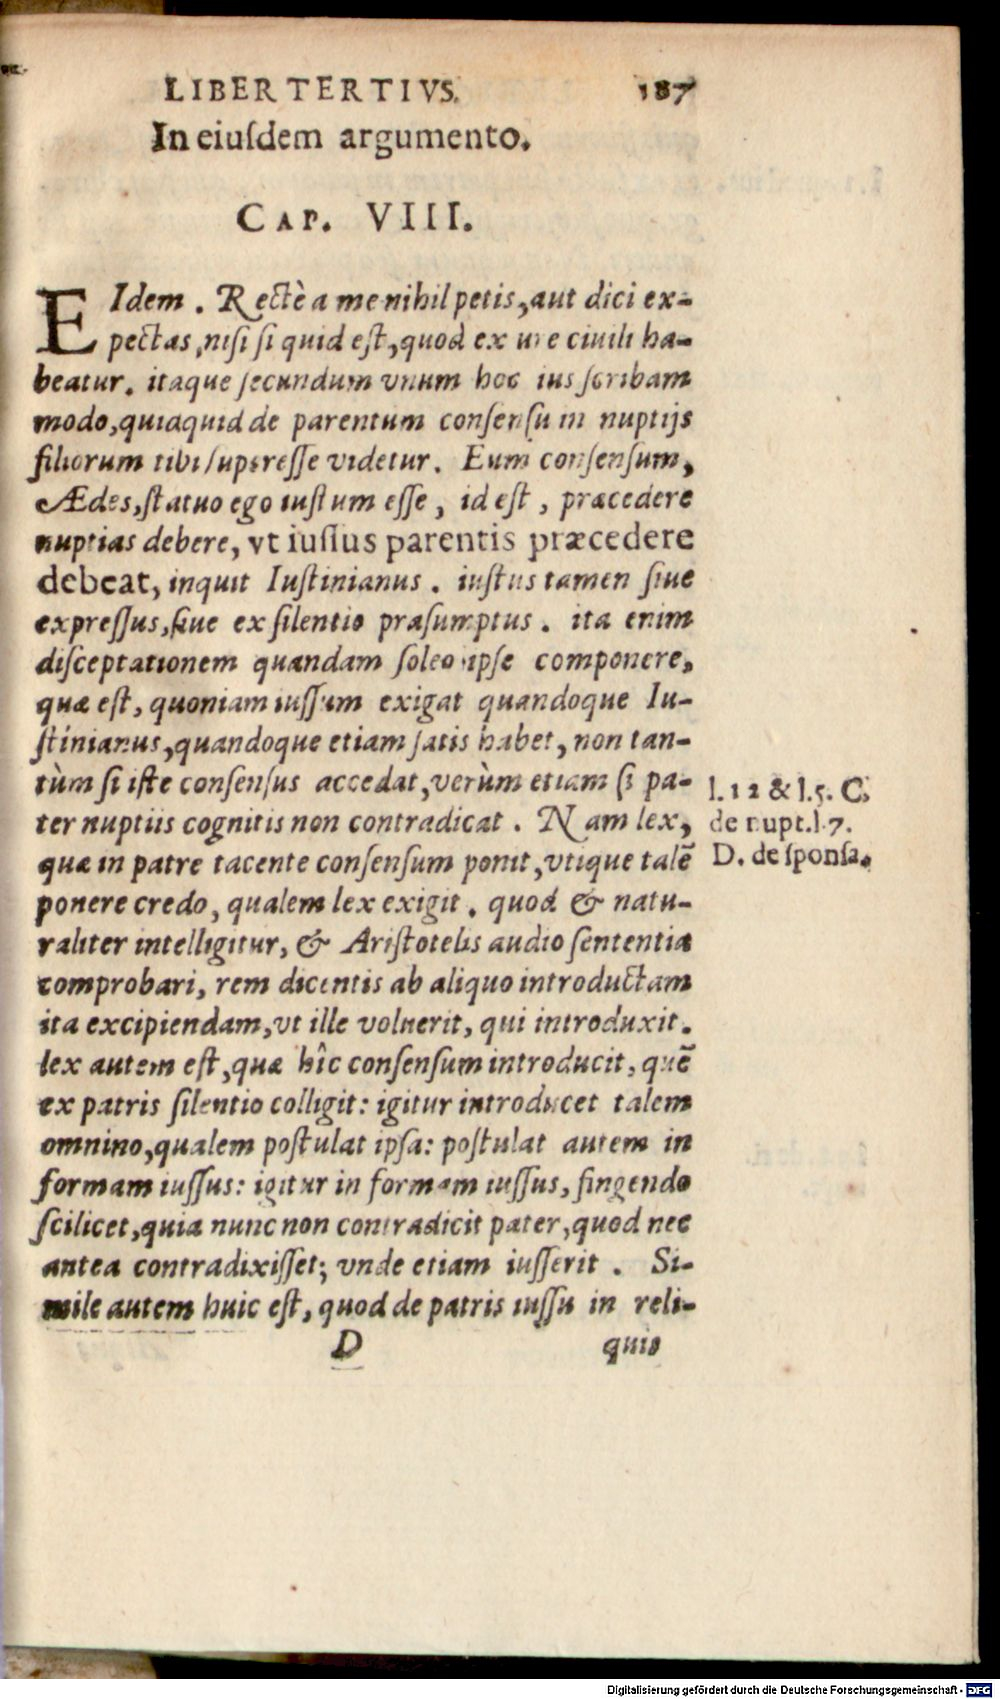 LIBER TERTIVS. 187
In eiuſdem argumento.
CAP. VIII.
EIdem. Rectè a me nihil petis, aut dici ex-
pectas, niſi ſi quid eſt, quod ex iure ciuili ha-
beatur. itaque ſecundum vnum hoc ius ſcribam
modo, quidquid de parentum conſenſu in nuptijs
filiorum tibi ſupereſſe videtur. Eum conſenſum,
Ædes, ſtatuo ego iuſtum eſſe, id eſt, præcedere
nuptias debere, vt iuſſus parentis præcedere
debeat, inquit Iuſtinianus. iuſtus tamen ſiue
expreſſus, ſiue ex ſilentio præſumptus. ita enim
diſceptationem quandam ſoleo ipſe componere,
quæ eſt, quoniam iuſſum exigat quandoque Iu-
ſtinianus, quandoque etiam ſatis habet, non tan-
tùm ſi iſte conſenſus accedat, verùm etiam ſi pa-
ter nuptiis cognitis non contradicat. Nam lex,
quæ in patre tacente conſenſum ponit, vtique talē
ponere credo, qualem lex exigit. quod & natu-
raliter intelligitur, & Ariſtotelis audio ſententia
comprobari, rem dicentis ab aliquo introductam
ita excipiendam, vt ille voluerit, qui introduxit.
lex autem eſt, quæ hîc conſenſum introducit, quē
ex patris ſilentio colligit: igitur introducet talem
omnino, qualem poſtulat ipſa: poſtulat autem in
formam iuſſus: igitur in formam iuſſus, fingendo
ſcilicet, quia nunc non contradicit pater, quod nec
antea contradixiſſet; vnde etiam iuſſerit. Si-
mile autem huic eſt, quod de patris iuſſu in reli-
D quis
l. 12 & l. 5. C.
de nupt. l. 7.
D. de ſponſa.
Digitalisierung gefördert durch die Deutsche Forschungsgemeinschaft - DFG